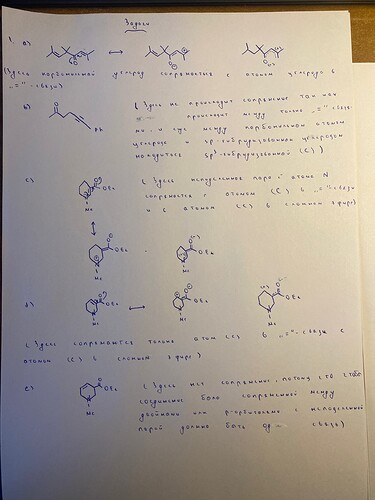 Задачи
1. a)
(Здесь карбонильный углерод сопрягается с атомом углерода в
"="-связи)
b)
(Здесь не происходит сопряжение так как
происходит между только "="-связя-
ми, а еще между карбонильным атомом
углерода и sp-гибридизованным углеродом
находится sp³-гибридизованный (C).)
O
Ph
c)
(Здесь неподеленная пара атома N
сопрягается с атомом (C) в "="-связи
и с атомом (C) в сложном эфире)
OEt
N
Me
OEt
N
Me
OEt
N
Me
d)
OEt
N
Me
OEt
N
Me
OEt
N
Me
(Здесь сопрягается только атом (C) в "="-связи с
атомом (C) в сложном эфире)
e)
(Здесь нет сопряжения, потому что чтобы
соединение было сопряженной между
двойными или p-орбиталями с неподеленной
парой должно быть связь)
O
OEt
N
Me